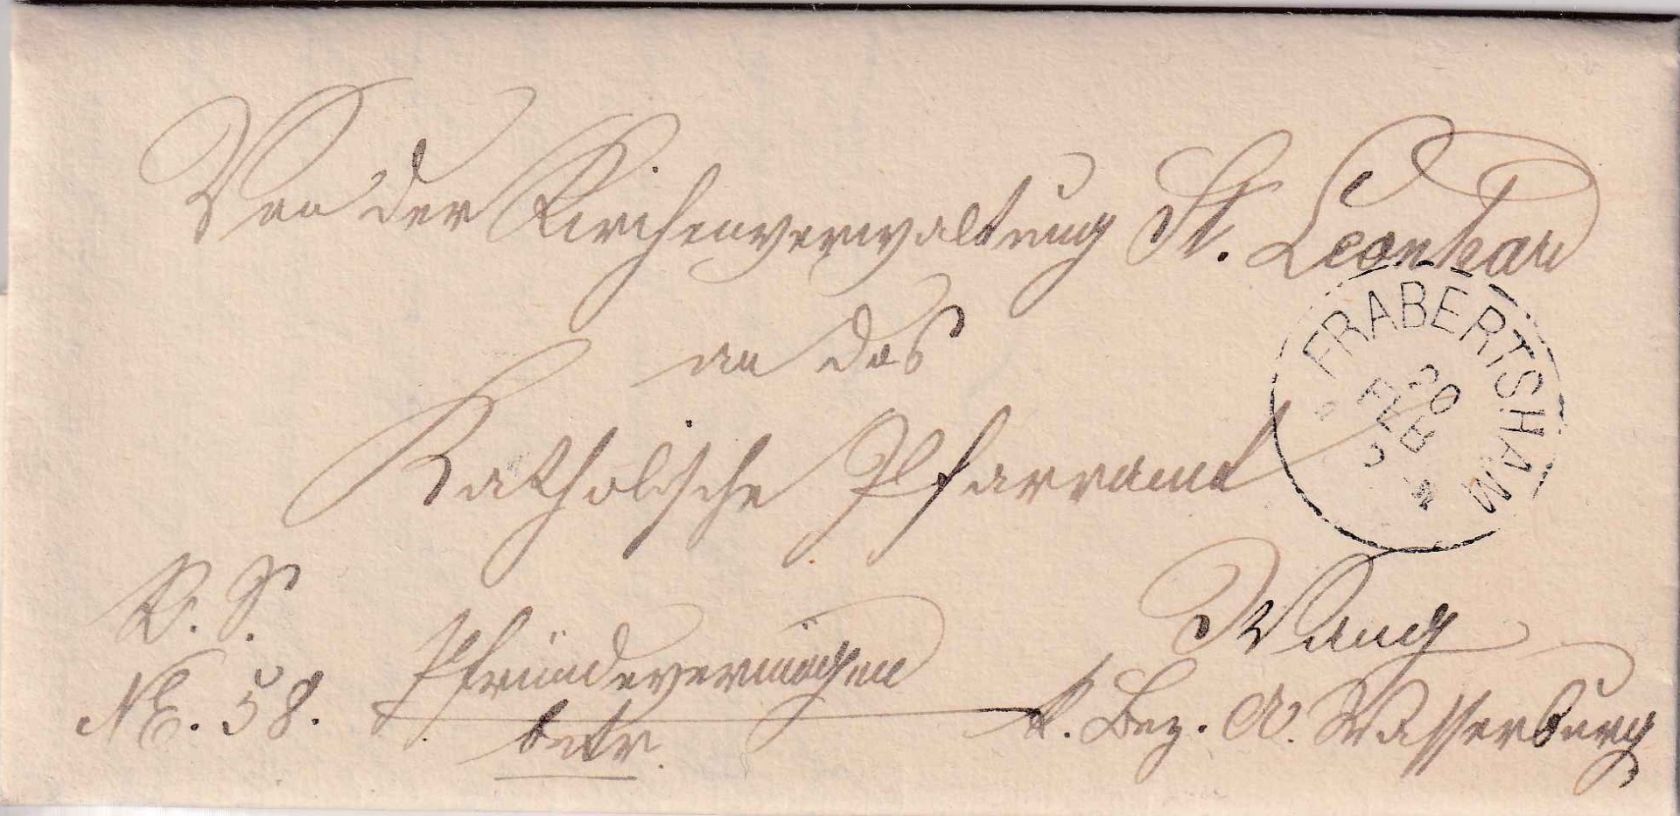 Von der Kirchenverwaltung St. Leonhard
an das
Katholische Pfarramt
FRABERTSHAM
20
FEB
Wang
R. S.
No. 58.
Pfründevermögen
betr.
k. Bez. A. Wasserburg